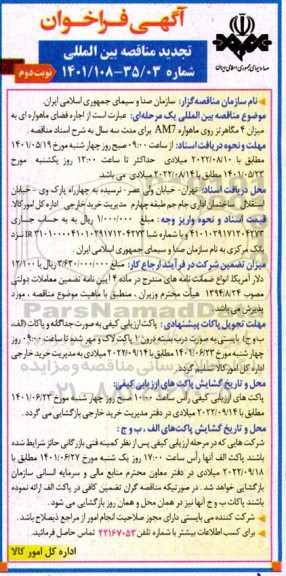 آگهی فراخوان
تجدید مناقصه بین المللی
شماره ۳۵/۰۳-۱۴۰۱/۱۰۸
نوبت دوم
صدا و سیمای جمهوری اسلامی ایران
نام سازمان مناقصه گزار: سازمان صدا و سیمای جمهوری اسلامی ایران.
موضوع مناقصه بین المللی یک مرحله‌ای: عبارت است از اجاره فضای ماهواره ای به
میزان ۴ مگاهرتز روی ماهواره AM7 برای مدت سه سال به شرح اسناد مناقصه
مهلت و نحوه دریافت اسناد: از ساعت ۰۹:۰۰ صبح روز چهار شنبه مورخ ۱۴۰۱/۰۵/۱۹
مطابق با ۲۰۲۲/۰۸/۱۰ میلادی حداکثر تا ساعت ۱۲:۰۰ روز یکشنبه مورخ
۱۴۰۱/۰۵/۲۳ مطابق با ۲۰۲۲/۰۸/۱۴ میلادی می باشد.
محل دریافت اسناد: تهران- خیابان ولی عصر- نرسیده به چهارراه پارک وی- خیابان
استقلال - ساختمان اداری جام جم طبقه چهارم مدیریت خرید خارجی اداره کل امور کالا.
قیمت اسناد و نحوه واریز وجه: مبلغ ۱/۰۰۰/۰۰۰ ریال به به حساب جاری
۴۱۰۱۰۲۹۱۷۱۲۰۴۲۷۳ و یا شماره شبا IR ۳۱۰۱۰۰۰۰۴۱۰۱۰۲۹۱۷۱۲۰۴۲۷۳ نزد
بانک مرکزی به نام سازمان صدا و سیمای جمهوری اسلامی ایران.
میزان تضمین شرکت در فرآیند ارجاع کار: مبلغ ۳/۶۳۰/۰۰۰/۰۰۰ ریال یا ۱۲/۱۰۰
دلار آمریکا. انواع ضمانت نامه های مندرج در ماده ۴ آیین نامه تضمین معاملات دولتی
مصوب ۱۳۹۴/۸/۲۴ هیأت محترم وزیران ، منطبق با ماهیت موضوع مناقصه ، مورد
پذیرش می باشد.
مهلت تحویل پاکات پیشنهادی: پاکت ارزیابی کیفی به صورت جداگانه و پاکات (الف،
ب و ج)، بایستی به صورت درب بسته درون ۱ پاکت لاک و مهر شده تا ساعت ۰۹:۰۰ روز
چهار شنبه مورخ ۱۴۰۱/۰۶/۲۳ مطابق با ۲۰۲۲/۰۹/۱۴ میلادی به مدیریت خرید خارجی
اداره کل امور کالا تسلیم گردد.
محل و تاریخ گشایش پاکت های ارزیابی کیفی:
پاکت های ارزیابی کیفی رأس ساعت ۱۰:۰۰ صبح روز چهار شنبه مورخ ۱۴۰۱/۰۶/۲۳
مطابق با ۲۰۲۲/۰۹/۱۴ میلادی در دفتر مدیریت خرید خارجی بازگشایی می گردد .
محل و تاریخ گشایش پاکت‌های الف ، ب و ج:
شرکت هایی که در مرحله ارزیابی کیفی پس از نظر کمیته فنی بازرگانی حائز شرایط شده
باشند پاکت الف آنها رأس ساعت ۱۷:۰۰ روز یک شنبه مورخ ۱۴۰۱/۰۶/۲۷ مطابق با
۲۰۲۲/۰۹/۱۸ میلادی در دفتر معاون محترم منابع مالی و سرمایه انسانی سازمان
بازگشایی خواهد شد. در صورتیکه مناقصه گران تضمین کافی در پاکت الف ارائه نموده
باشند پاکات ب و ج آنها نیز در همان محل و همان روز بازگشایی می شود.
شرکت کننده می بایستی دارای مجوز صلاحیت انجام امور از مراجع ذیصلاح باشد.
برای کسب اطلاعات بیشتر با شماره تلفن ۲۲۱۶۷۰۵۳ تماس حاصل فرمائید.
اداره کل امور کالا